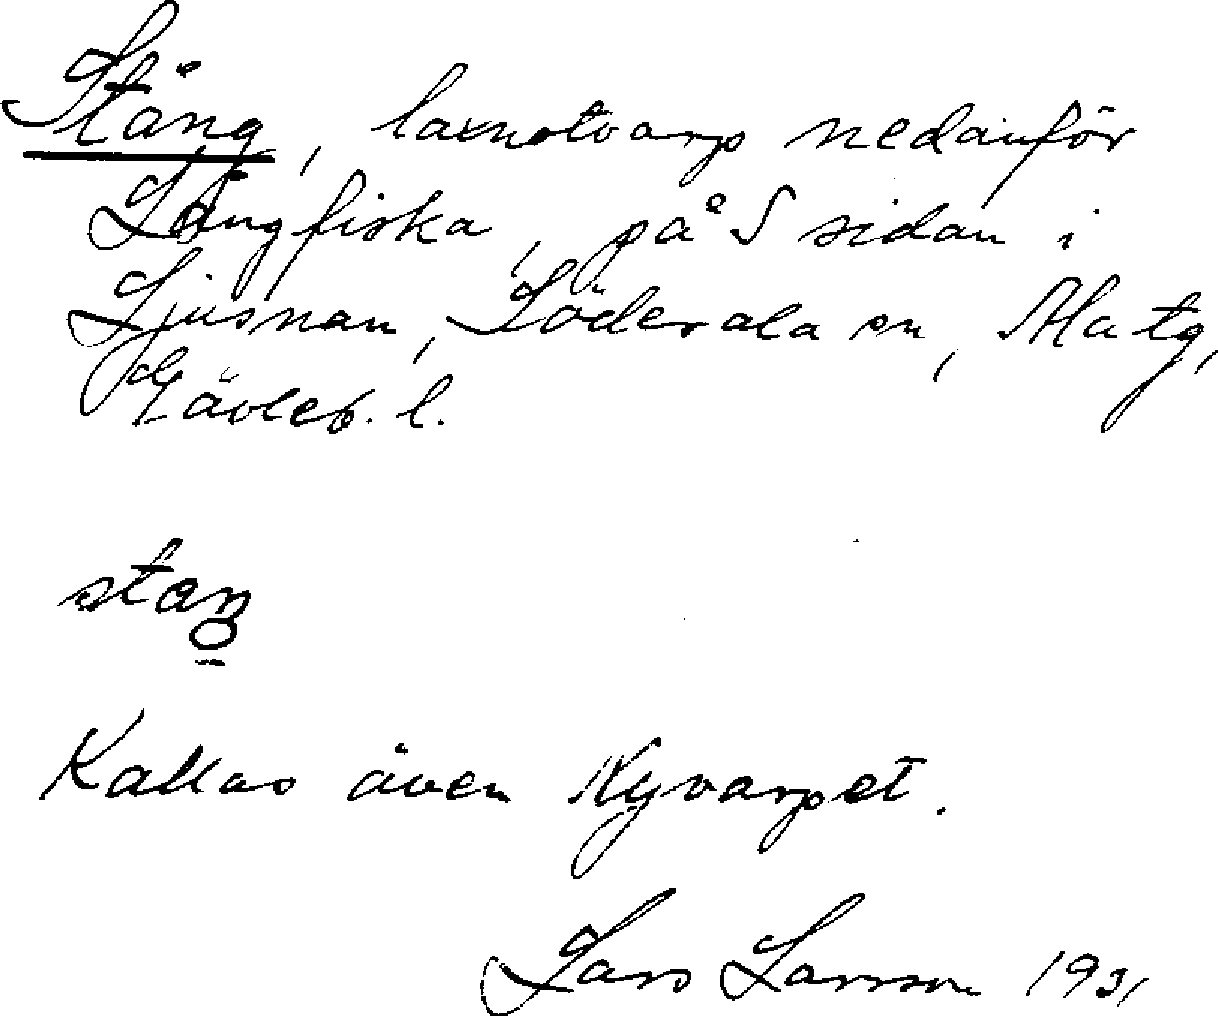 Stång, laxnotvarp nedanför
Långfiska, på S sidan i
Ljusnan, Söderala sn, Ala tg,
Gävleb. l.
staŋ
Kallas även Nyvarpet.
Lars Larsson 1931